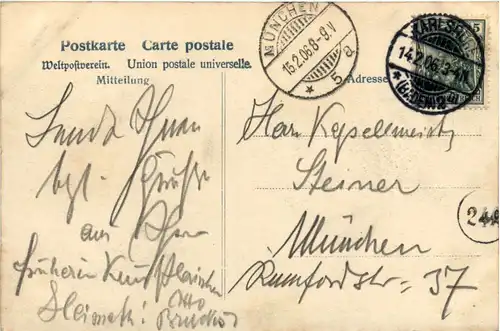 Postkarte Carte postale
Weltpostverein. Union postale universelle.
Mitteilung
Adresse
MÜNCHEN
15.2.06.8-9.V
5 a
KARLSRUHE
14.2.06.3-4N
(BADEN)2
5
Sende Ihnen
bzl. Grüße
aus Ihrer
früheren
Heimath!
Otto
Herrn Kapellmeister
Steiner
München
Rumfordstr. 37